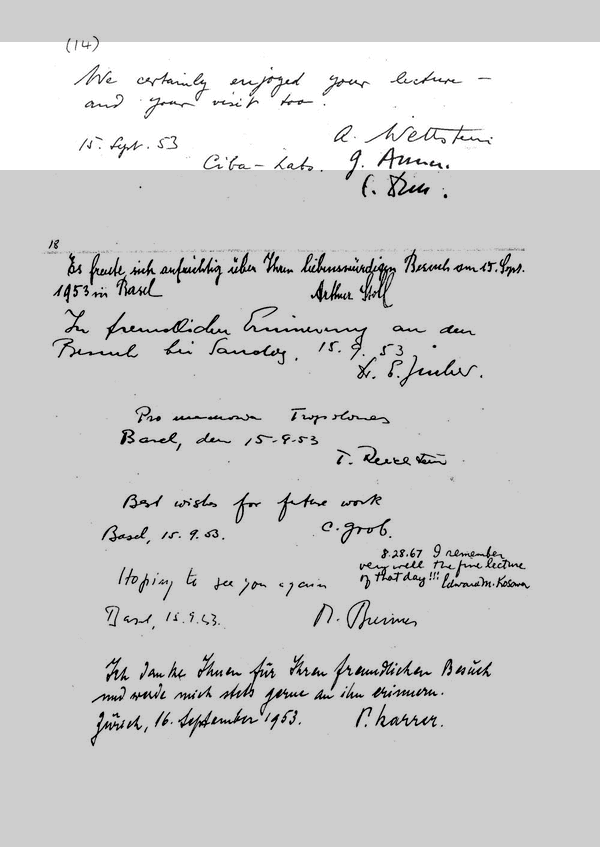 (14)
We certainly enjoyed your lecture –
and your visit too.
15. Sept. 53
A. Wettstein
Ciba-Labs. G. Anner.
18
Es freute sich aufrichtig über Ihren liebenswürdigen Besuch am 15. Sept.
1953 in Basel
Arthur Stoll
In freundlicher Erinnerung an den
Besuch bei Sandoz, 15. 9. 53.
Pro memoria Tropolones
Basel, den 15-9-53
T. Reichstein
Best wishes for future work
Basel, 15. 9. 53.
C. Grob.
8.28.67 I remember
very well the fine lecture
of that day!!! Edward M. Kosower
Hoping to see you again
Basel, 15.9.53.
Ich danke Ihnen für Ihren freundlichen Besuch
und werde mich stets gerne an ihn erinnern.
Zürich, 16. September 1953.
P. Karrer.